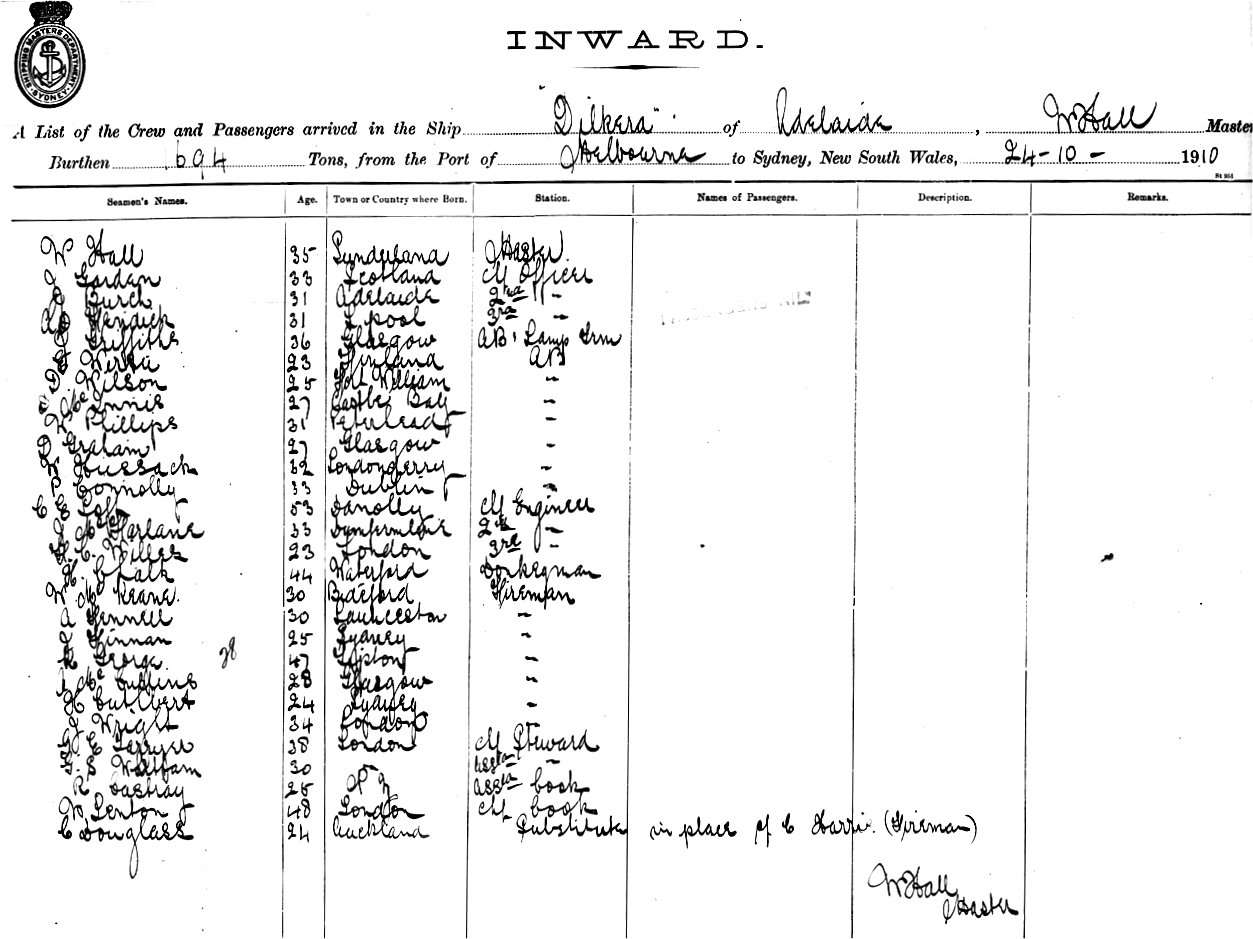 SHIPPING MASTERS DEPARTMENT SYDNEY
INWARD.
A List of the Crew and Passengers arrived in the Ship "Dilkera" of Adelaide, W Hall Master
Burthen 694 Tons, from the Port of Melbourne to Sydney, New South Wales, 24-10- 1910
St 951
Seamen's Names. Age. Town or Country where Born. Station. Names of Passengers. Description. Remarks.
W Hall 35 Sunderland Master
J Gordon 33 Scotland Cf Officer
Burch 31 Adelaide 2nd "-
31 L'pool 3rd -
Griffiths 36 Glasgow AB & Lamp Trm
23 Finland AB
D Wilson 25 Fort William "
Mc Innis 27 Castle Bay "
W Phillips 31 Peterhead "
D Graham 27 Glasgow "
W Hussack 32 Londonderry "
P Connolly 33 Dublin "
C E 53 Cf Engineer
J McFarlane 33 Dumfermline 2nd "
H. C. Willes 23 London 3rd "
H. Chalk 44 Waterford Donkeyman
W McKeane. 30 Fireman
A Fennell 30 Launceston "
J Finnan 25 Sydney "
K George. 47 "
28
J McCubbins 28 Glasgow "
H Cuthbert 24 Sydney "
J Wright 34 London "
G E 38 London Cf Steward
G. S Waltham 30 " Asst "
R 25 N Z Asst Cook
W. Senton 48 London Chf Cook
C Douglass 24 Auckland Substitute in place of C Harris. (Fireman)
W Hall
Master